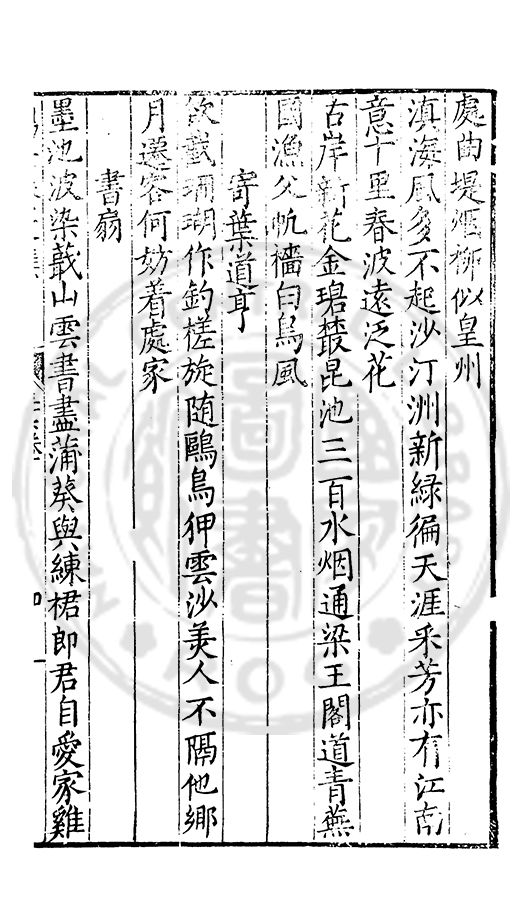 處曲堤煙柳似皇州
滇海風多不起沙汀洲新綠徧天涯釆芳亦有江南
意十里春波遠泛花
古岸新花金碧叢昆池三百水烟通梁王閣道青蕪
國漁父帆檣白鳥風
寄葉道亨
斂韍珊瑚作釣槎旋随鷗鳥狎雲沙美人不隔他鄉
月遷客何妨着處家
書扇
墨池波染蕺山雲書盡蒲葵與練裙郎君自愛家雞